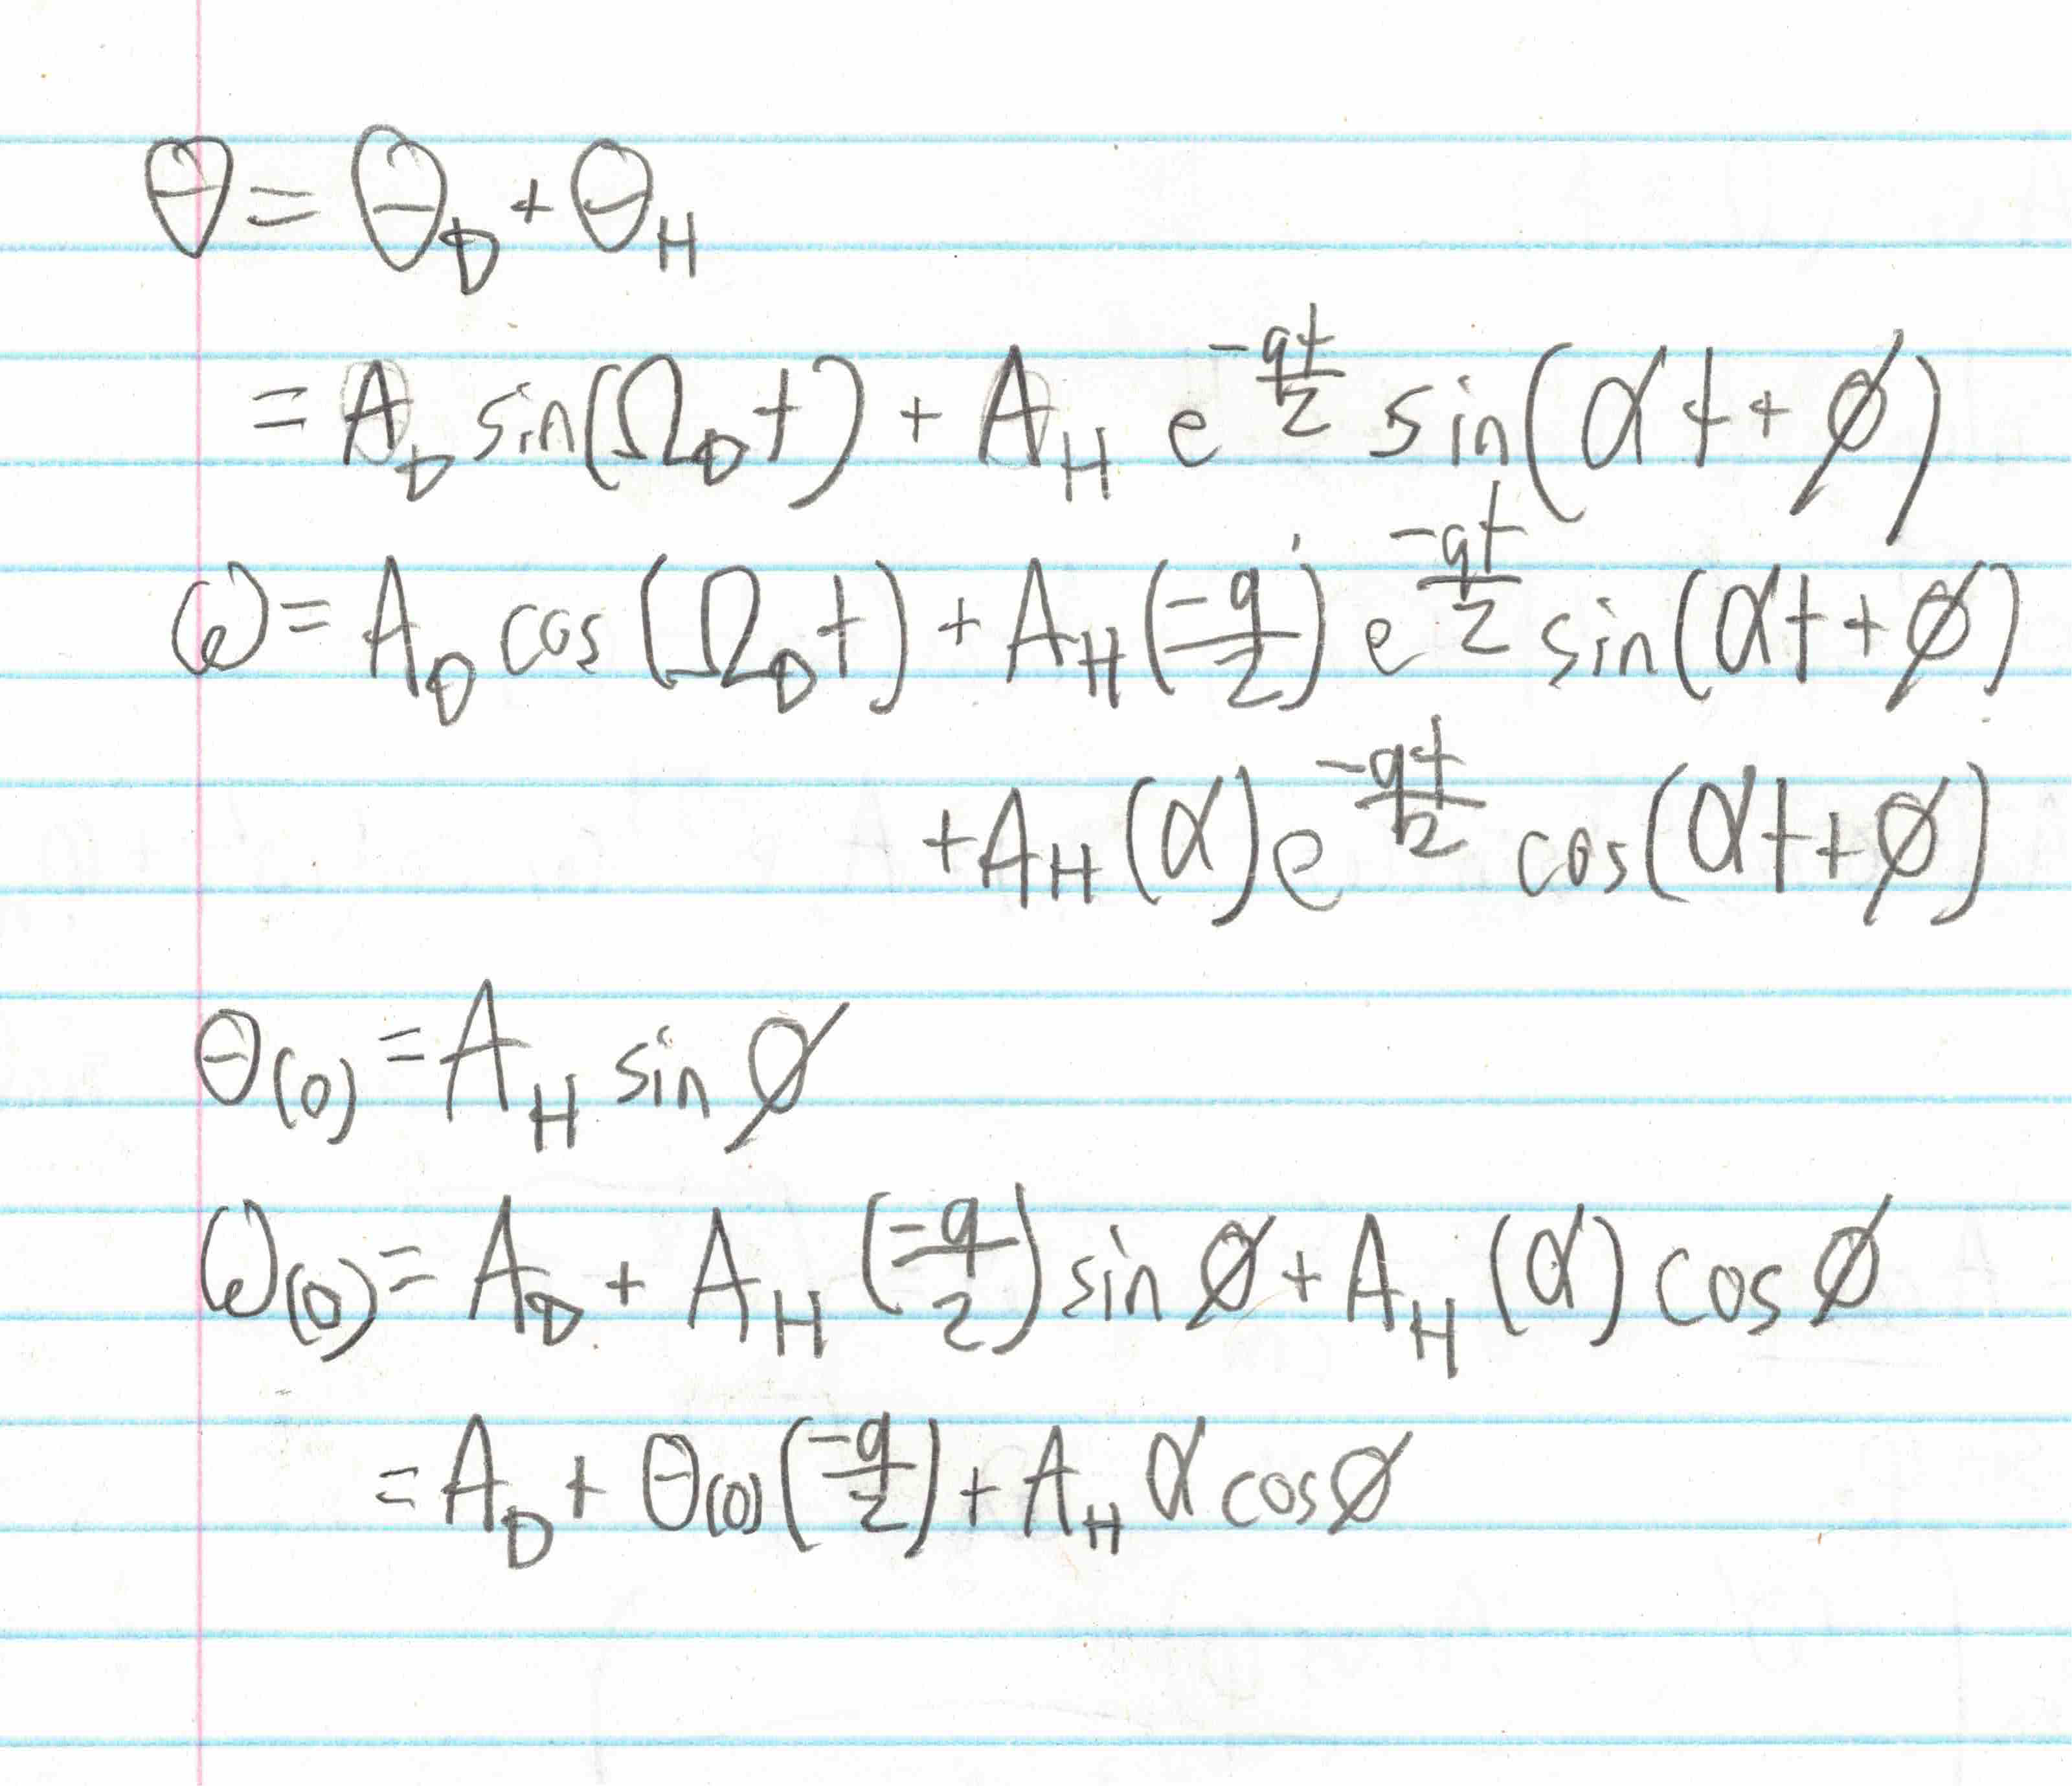 θ = θ_D + θ_H
= A_D sin(Ω_D t) + A_H e^(-qt/2) sin(αt + φ)
ω = A_D cos(Ω_D t) + A_H (-q/2) e^(-qt/2) sin(αt + φ)
+ A_H (α) e^(-qt/2) cos(αt + φ)
θ(0) = A_H sin φ
ω(0) = A_D + A_H (-q/2) sin φ + A_H (α) cos φ
= A_D + θ(0) (-q/2) + A_H α cos φ